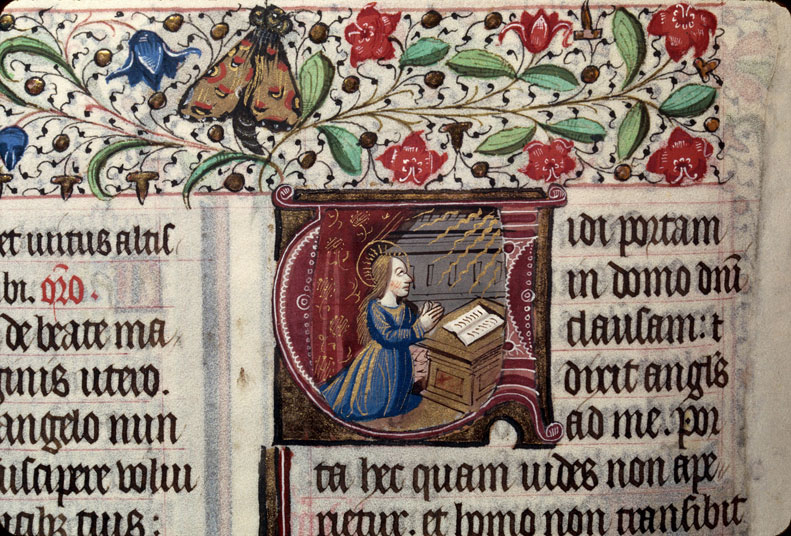 et uirtus altis
bi. oro.
de beate ma
ginis utero.
angelo nun
suscipere uolui
tuis:
Vidi portam
in domo dni
clausam: t
dixit angls
ad me. Por
ta hec quam uides non ape
rietur. et homo non transibit